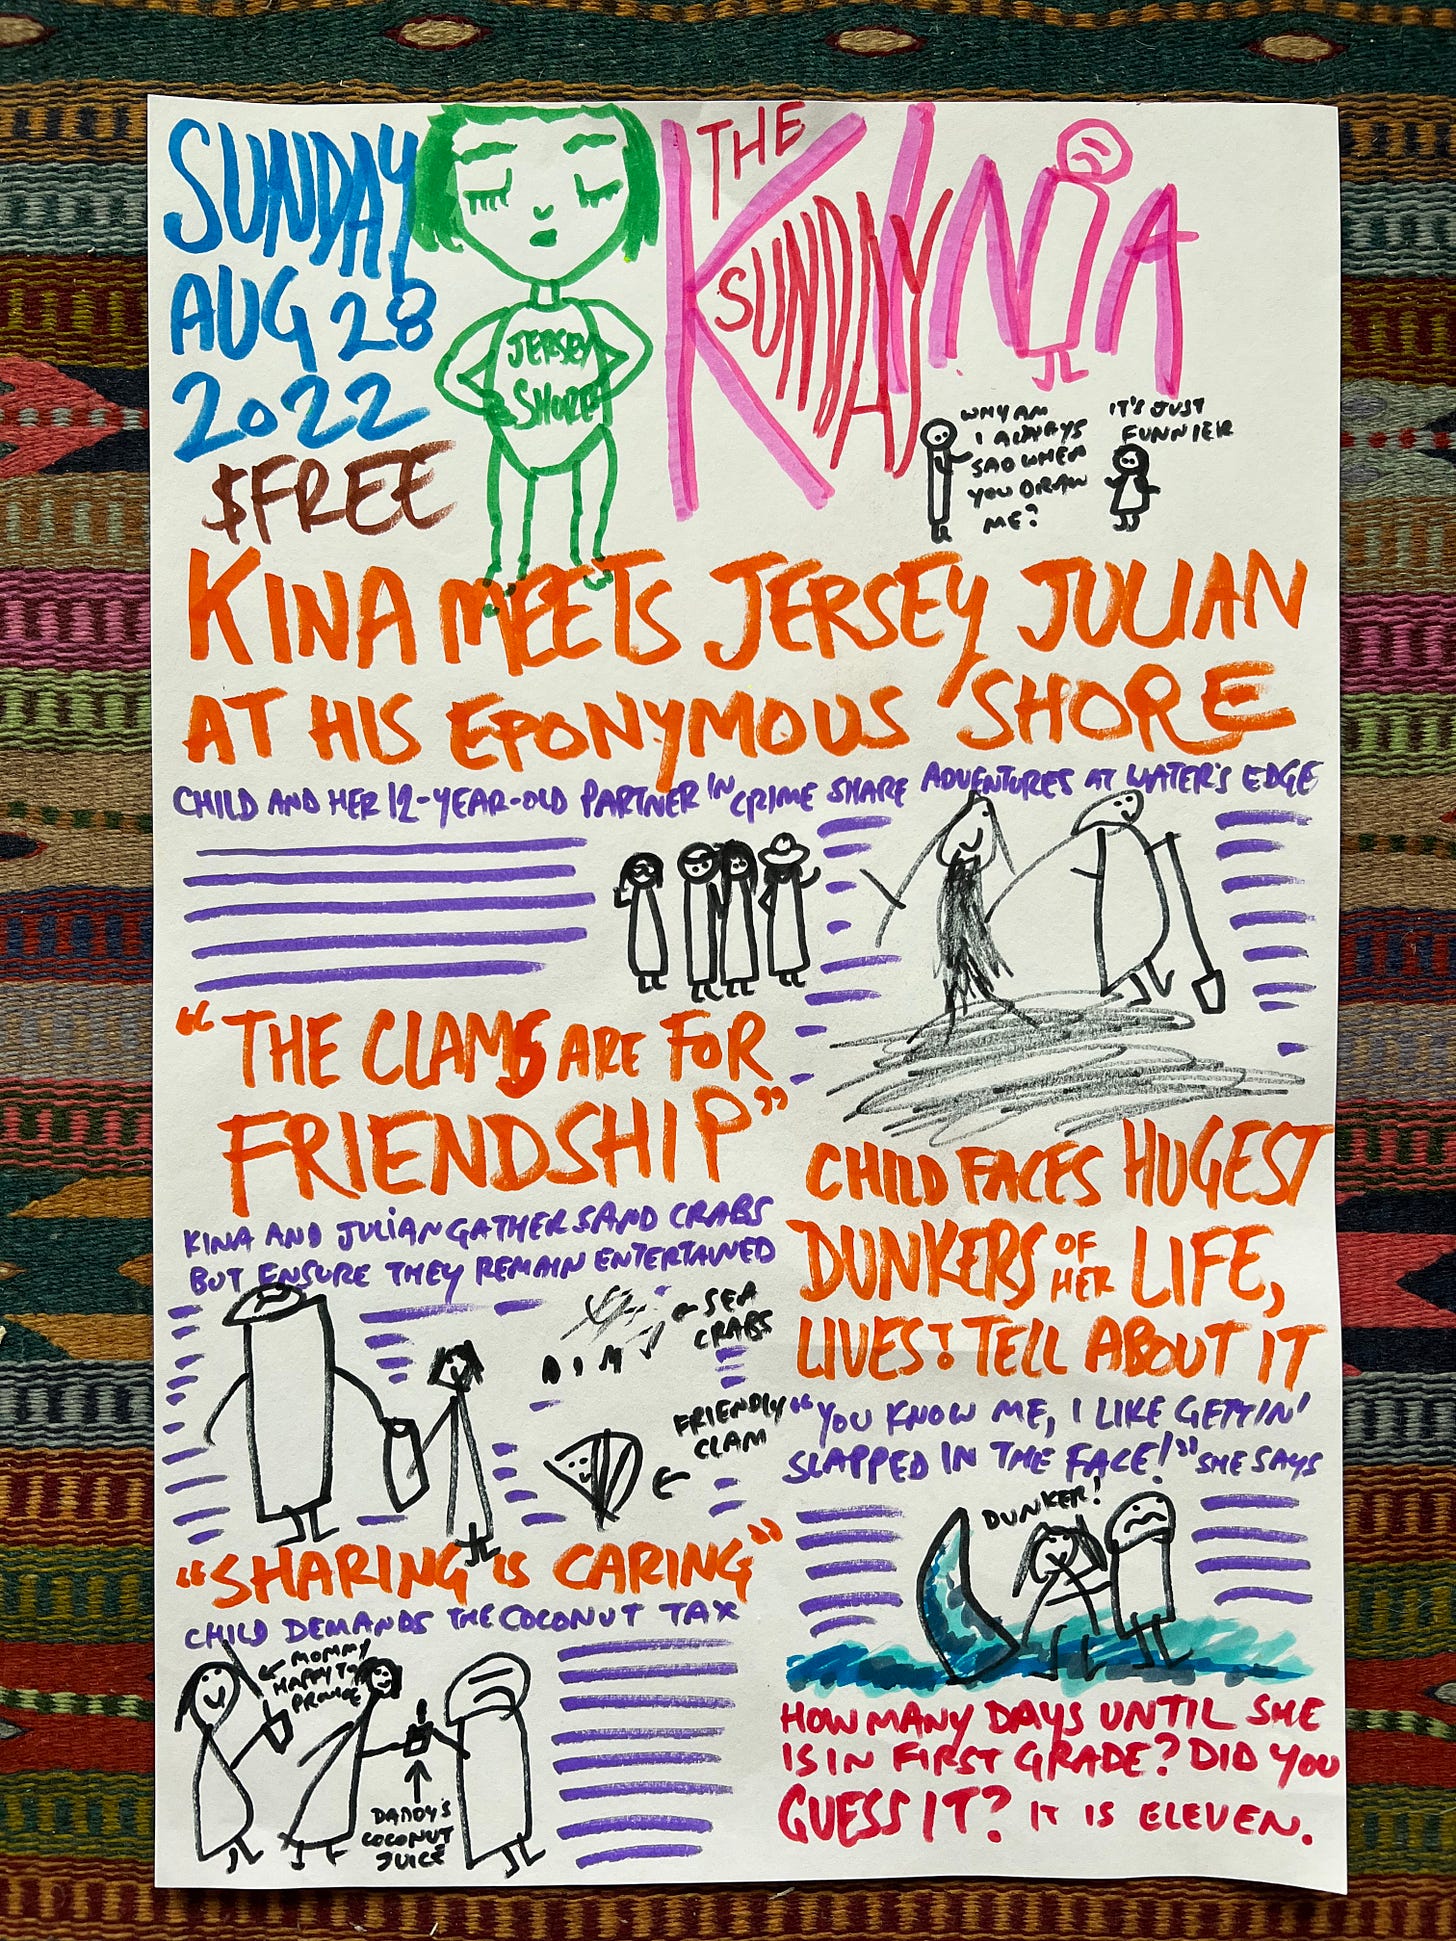 SUNDAY
AUG 28
2022
$FREE
JERSEY
SHORE
THE
SUNDAY
KiNiA
WHY AM
I ALWAYS
SAD WHEN
YOU DRAW
ME?
IT'S JUST
FUNNIER
KINA MEETS JERSEY JULIAN
AT HIS EPONYMOUS SHORE
CHILD AND HER 12-YEAR-OLD PARTNER IN CRIME SHARE ADVENTURES AT WATER'S EDGE
"THE CLAMS ARE FOR
FRIENDSHIP"
KINA AND JULIAN GATHER SAND CRABS
BUT ENSURE THEY REMAIN ENTERTAINED
← SEA
CRABS
FRIENDLY
CLAM ←
"SHARING IS CARING"
CHILD DEMANDS THE COCONUT TAX
← MOMMY
HAPPY TO
PROVIDE
DADDY'S
COCONUT
JUICE
CHILD FACES HUGEST
DUNKERS OF HER LIFE,
LIVES TO TELL ABOUT IT
"YOU KNOW ME, I LIKE GETTIN'
SLAPPED IN THE FACE!" SHE SAYS
DUNKER!
HOW MANY DAYS UNTIL SHE
IS IN FIRST GRADE? DID YOU
GUESS IT? IT IS ELEVEN.